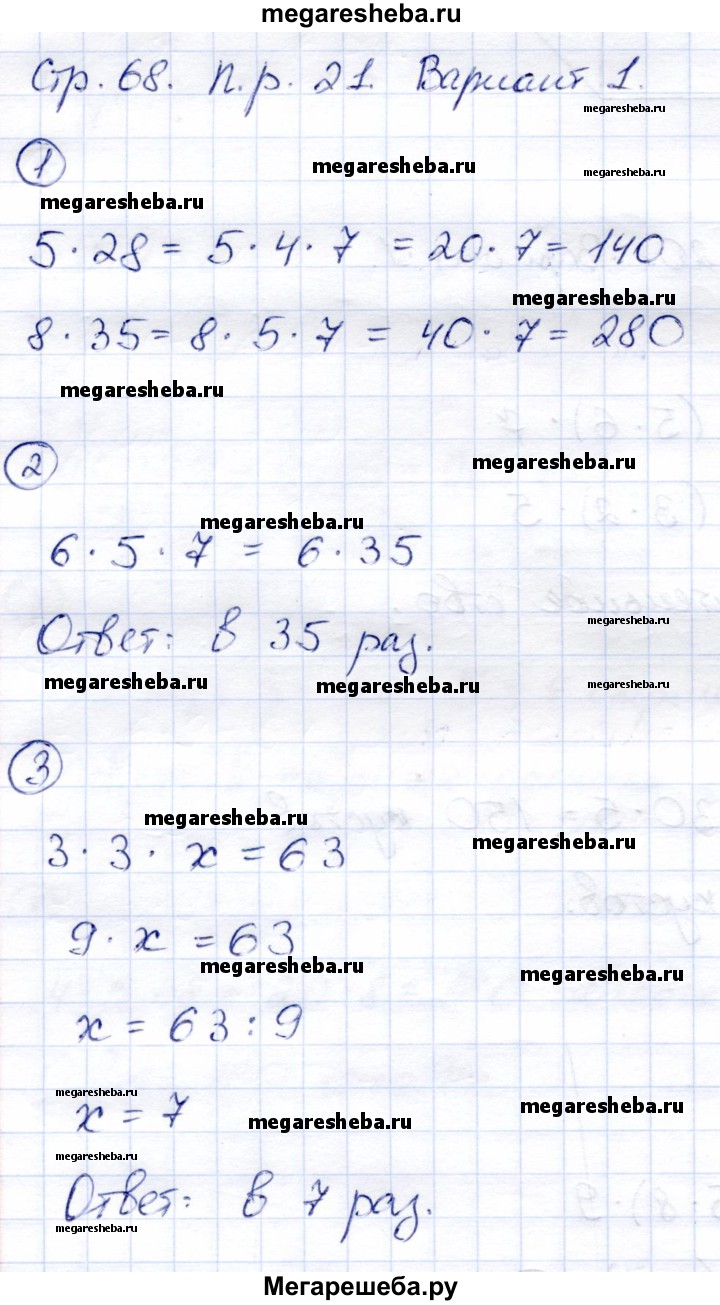 megaresheba.ru
Стр. 68. П.р. 21. Вариант 1.
megaresheba.ru
1
megaresheba.ru
megaresheba.ru
megaresheba.ru
5 · 28 = 5 · 4 · 7 = 20 · 7 = 140
megaresheba.ru
8 · 35 = 8 · 5 · 7 = 40 · 7 = 280
megaresheba.ru
(5 · 6) · 7
2
megaresheba.ru
(3 · 2) · 5
megaresheba.ru
6 · 5 · 7 = 6 · 35
Ответ: в 35 раз.
megaresheba.ru
megaresheba.ru
megaresheba.ru
megaresheba.ru
3
megaresheba.ru
30 · 5 = 150 кустов
megaresheba.ru
3 · 3 · x = 63
кустов.
9 · x = 63
megaresheba.ru
megaresheba.ru
x = 63 : 9
megaresheba.ru
x = 7
megaresheba.ru
megaresheba.ru
megaresheba.ru
Ответ: в 7 раз.
megaresheba.ru
8) · 9
Мегарешеба.ру